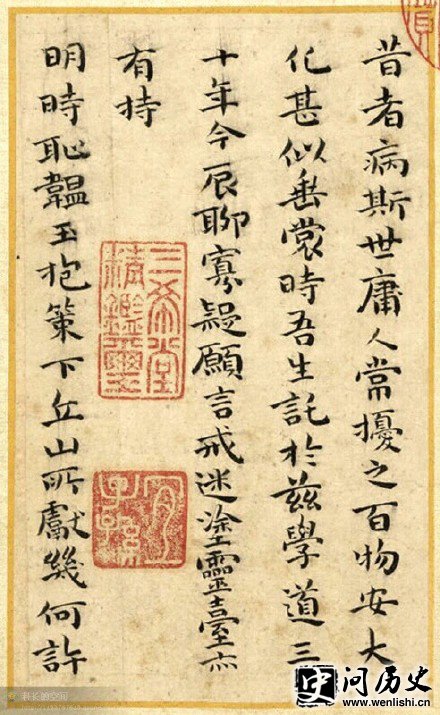 昔者病斯世庸人常擾之百物安大
化甚似垂裳時吾生託於茲學道三
十年今辰聊寡疑願言戒迷塗靈臺亦
有持
明時恥韞玉抱策下丘山所獻幾何許
三希堂
精鑑璽
宜
子孫
问历史
www.wenlishi.cn